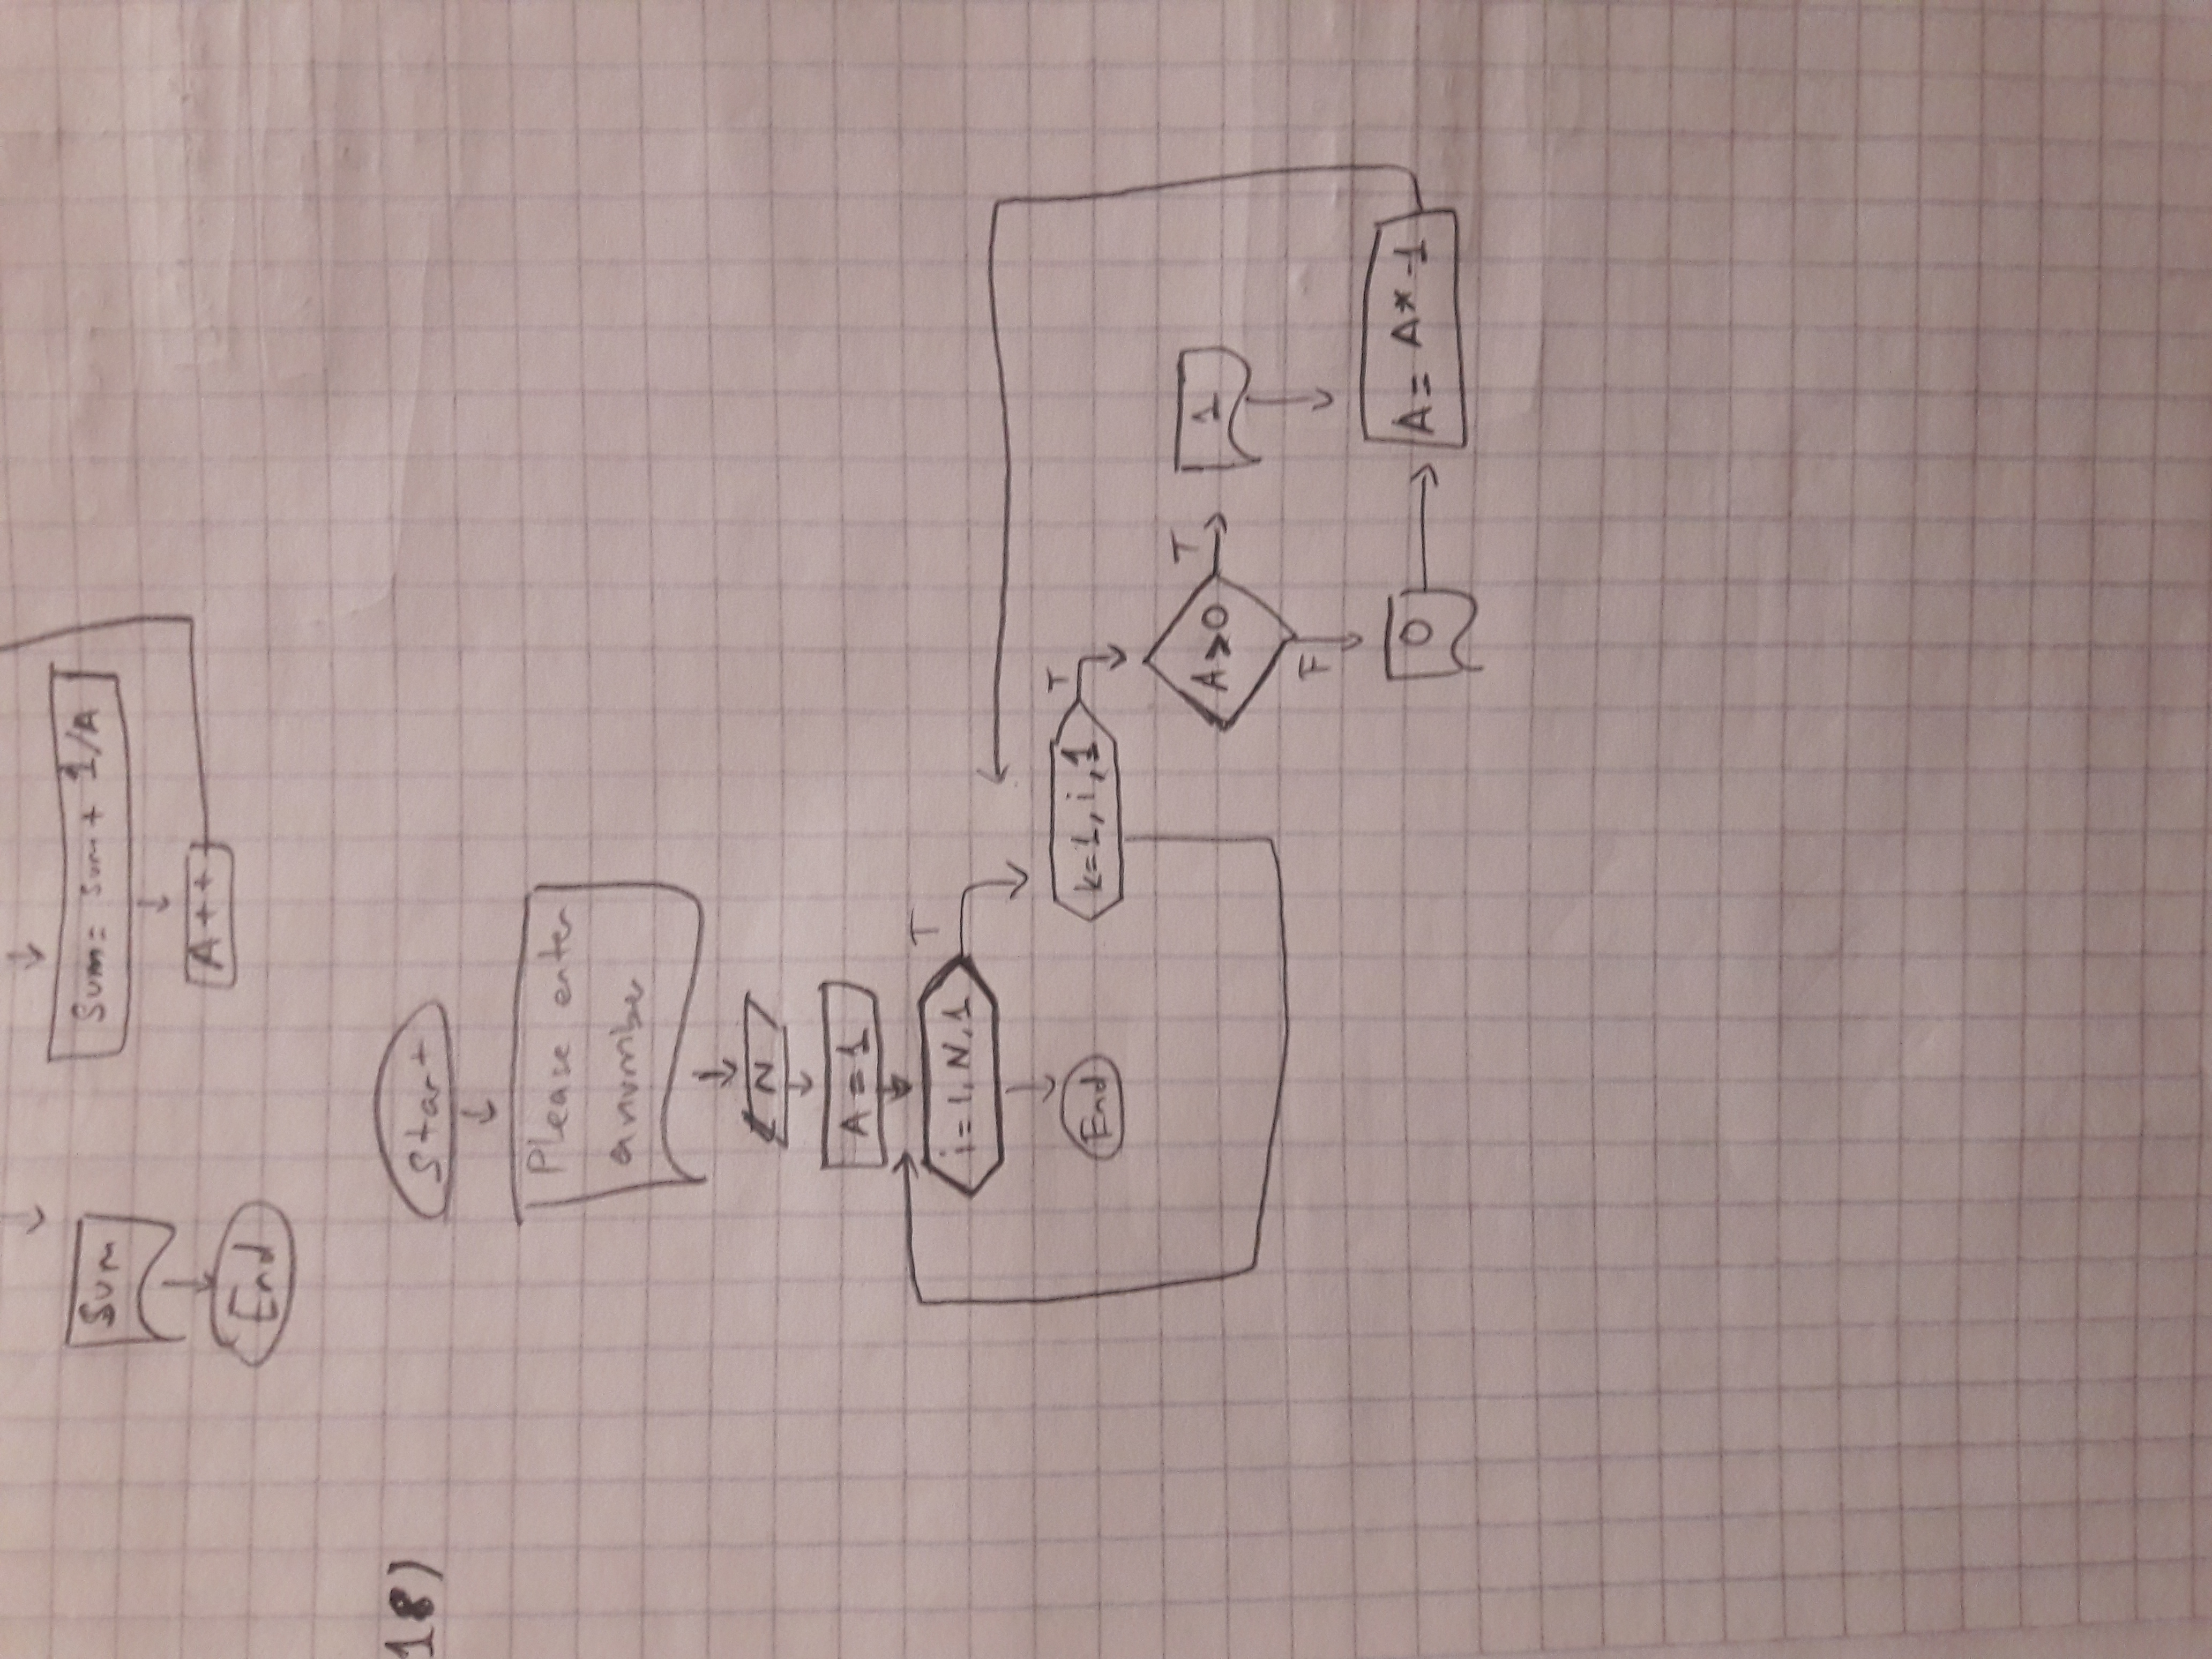 Sum
Sum= Sum + 1/A
A++
End
18)
Start
Please enter
a number
N
A = 1
i = 1, N, 1
T
End
k=1, i, 1
T
A>0
T
1
F
0
A = A* -1